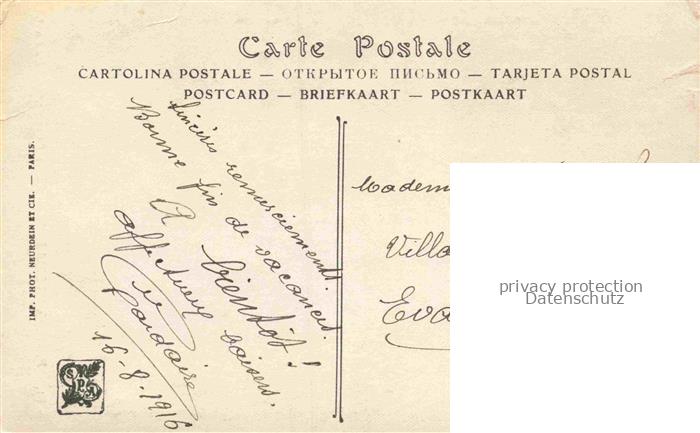 Carte Postale
CARTOLINA POSTALE — ОТКРЫТОЕ ПИСЬМО — TARJETA POSTAL
POSTCARD — BRIEFKAART — POSTKAART
IMP. PHOT. NEURDEIN ET CIE. — PARIS.
Sincères remerciements
Bonne fin de vacances.
A bientôt!
affectueux baisers.
16-8-1916
Madem
Villa
Eva
privacy protection
Datenschutz